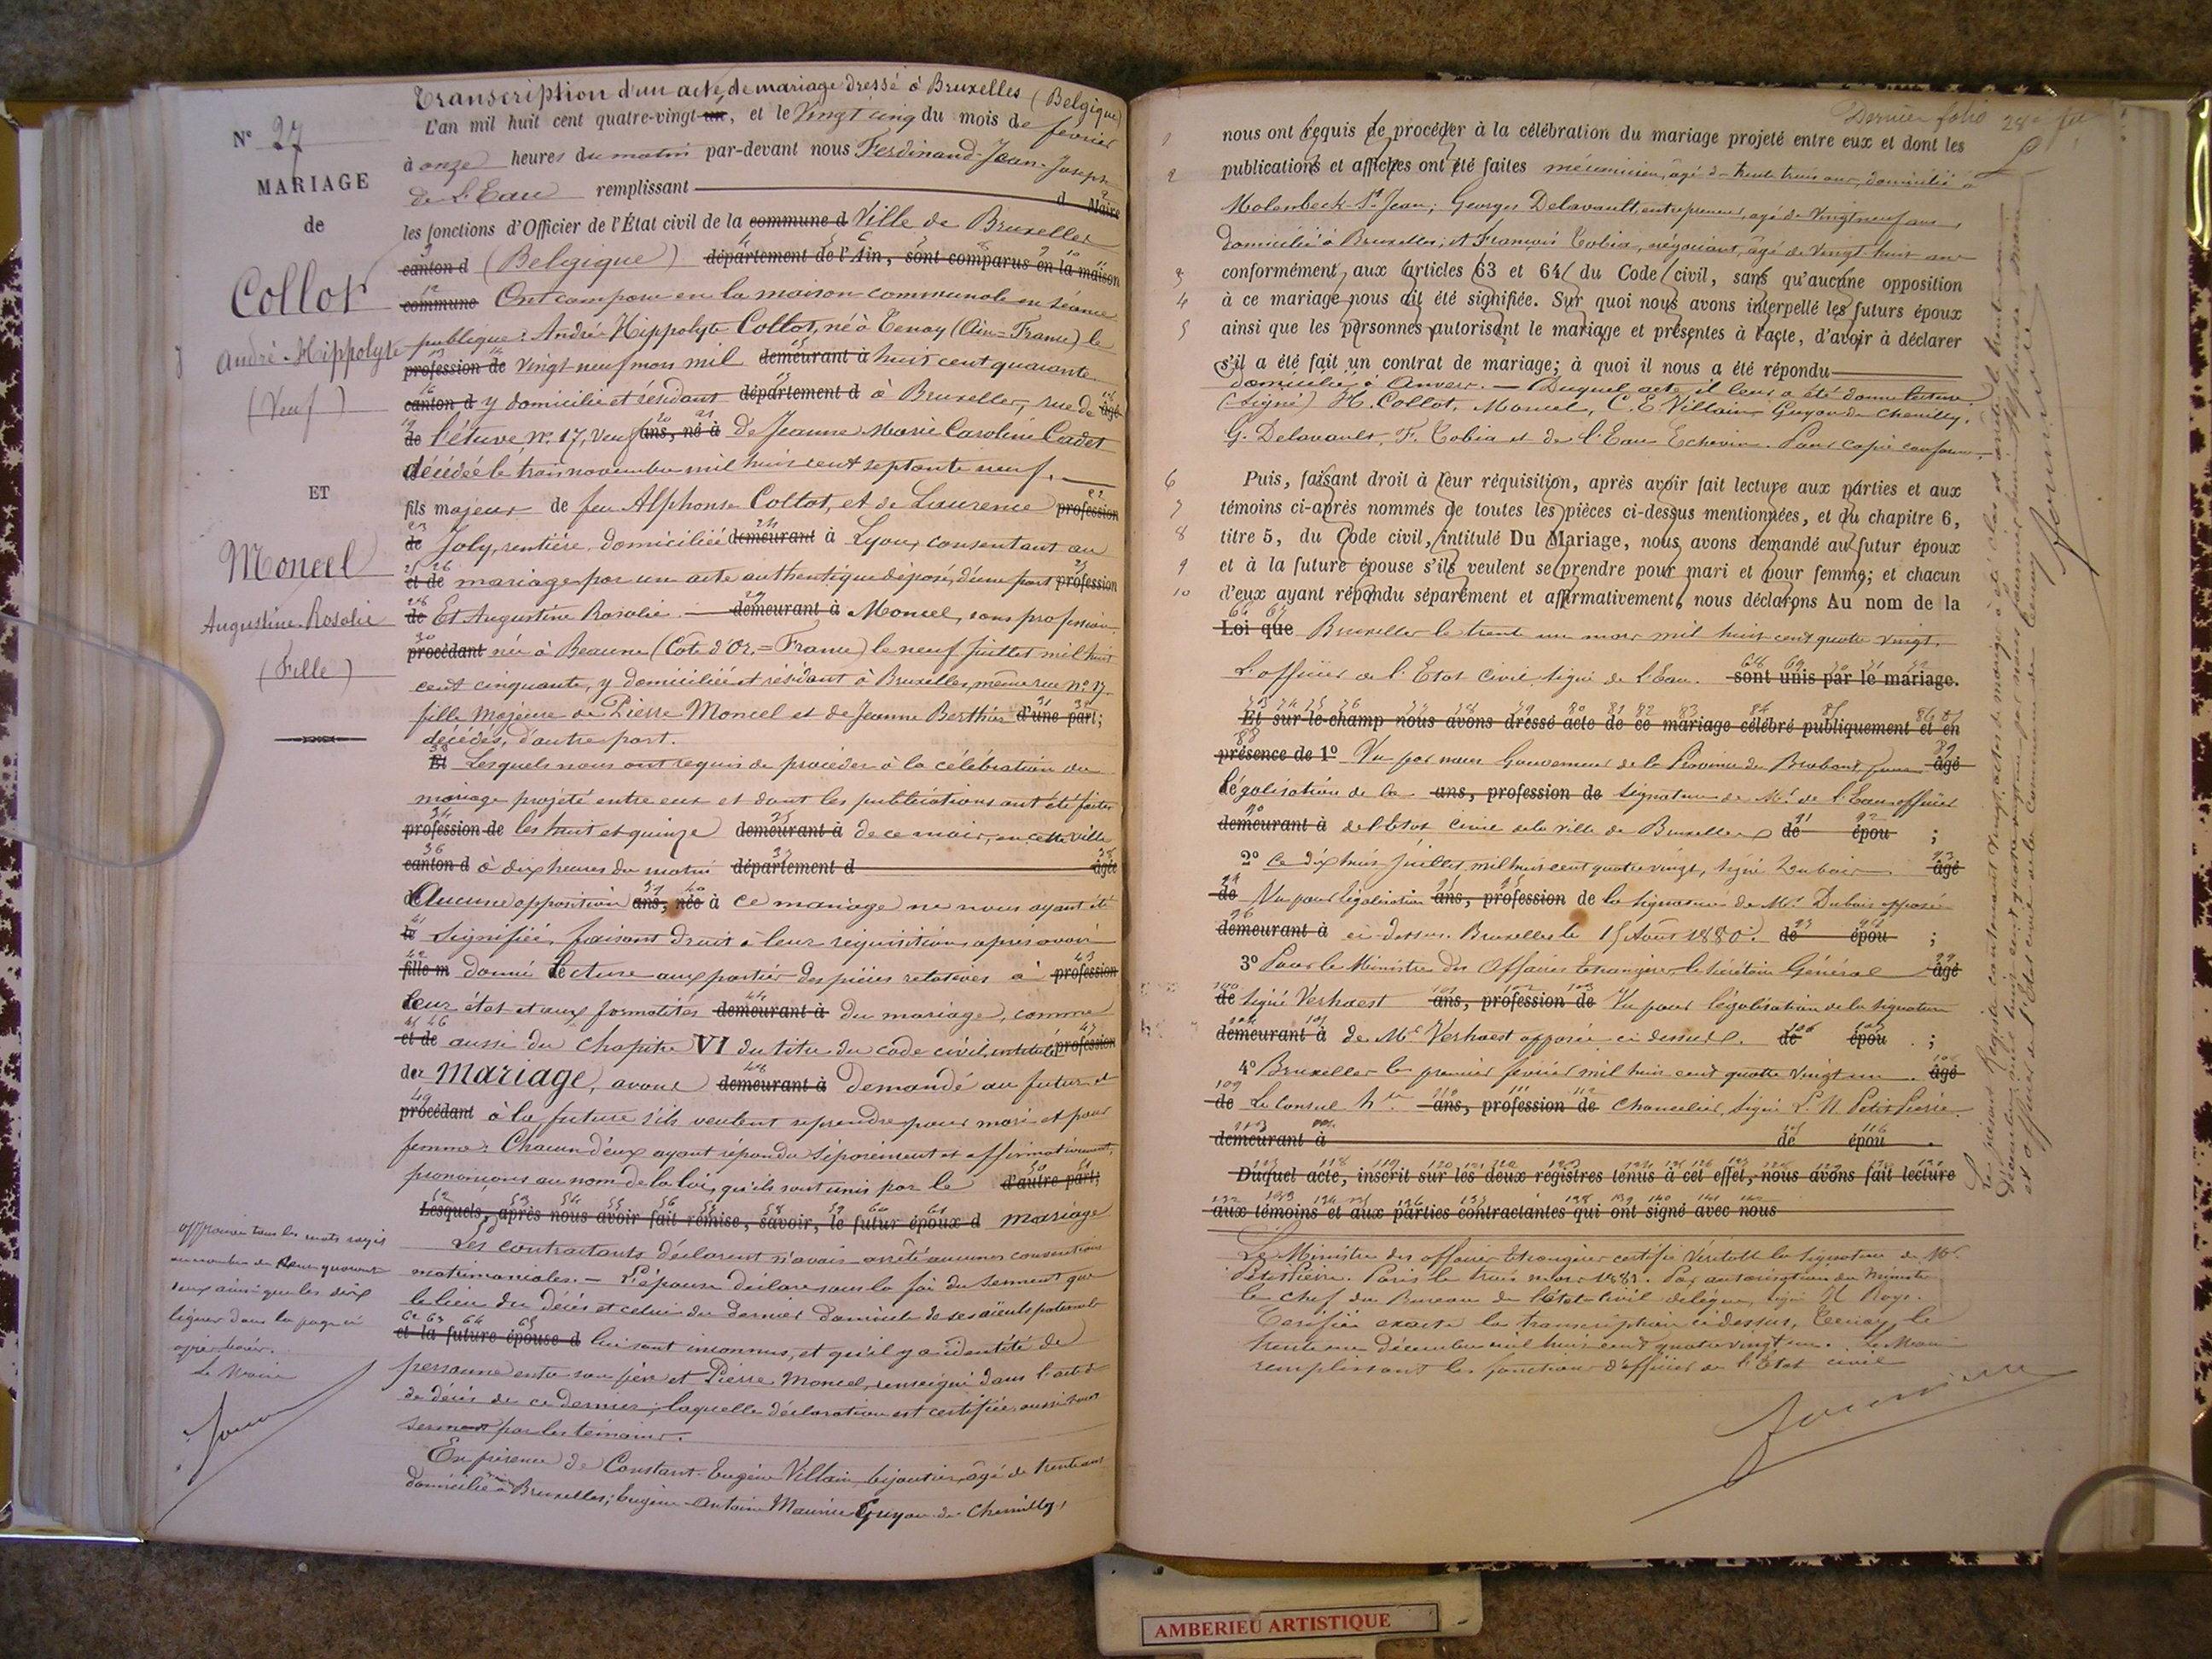 Transcription d'un acte de mariage dressé à Bruxelles (Belgique)
N° 27
MARIAGE
de
Collot
André-Hippolyte
(Veuf)
ET
Moncel
Augustine-Rosalie
(Fille)
L'an mil huit cent quatre-vingt-un, et le Vingt cinq du mois de février
à onze heures du matin par-devant nous Ferdinand-Jean-Joseph
de L'Eau remplissant d Maire
les fonctions d'Officier de l'État civil de la commune d Ville de Bruxelles
canton d (Belgique) département de l'Ain, sont comparus en la maison
commune Ont comparu en la maison communale en séance
publique: André-Hippolyte Collot, né à Tenay (Ain=France) le
profession de vingt neuf mars mil demeurant à huit cent quarante
canton d y domicilié et résidant département d à Bruxelles, rue de âgé
de l'étuve n° 17, veuf ans, né à de Jeanne Marie Caroline Cadet
décédée le trois novembre mil huit cent septante neuf.
fils majeur de feu Alphonse Collot, et de Laurence profession
de Joly, rentière, domiciliée demeurant à Lyon, consentant au
et de mariage par un acte authentique déposé, d'une part profession
de Et Augustine Rosalie demeurant à Moncel, sans profession
procédant née à Beaune (Côte d'Or,=France) le neuf juillet mil huit
cent cinquante, y domiciliée et résidant à Bruxelles, même rue n° 17
fille majeure de Pierre Moncel et de Jeanne Berthier d'une part;
décédés, d'autre part.
Et Lesquels nous ont requis de procéder à la célébration du
mariage projeté entre eux et dont les publications ont été faites
profession de les huit et quinze demeurant à de ce mois, en cette ville
canton d à dix heures du matin département d âgée
d Aucune opposition ans, née à ce mariage ne nous ayant été
le signifiée, faisant droit à leur réquisition, après avoir
fille m donné lecture aux parties des pièces relatives à profession
leur état et aux formalités demeurant à du mariage, comme
et de aussi du Chapitre VI du titre du code civil, intitulé profession
du Mariage, avons demeurant à demandé au futur et
procédant à la future s'ils veulent se prendre pour mari et pour
femme: Chacun d'eux ayant répondu séparément et affirmativement,
prononçons au nom de la loi, qu'ils sont unis par le d'autre part;
Lesquels, après nous avoir fait remise, savoir, le futur époux d mariage
Les contractants déclarent n'avoir arrêté aucunes conventions
matrimoniales. — L'épouse déclare sous la foi du serment que
le lieu du décès et celui du dernier domicile de ses aïeuls paternels
et la future épouse d lui sont inconnus, et qu'il y a identité de
personne entre son père et Pierre Moncel, renseigné dans l'acte
de décès de ce dernier, laquelle déclaration est certifiée aussi sous
serment par les témoins.
En présence de Constant-Eugène Villain, bijoutier, âgé de trente ans
domicilié à Bruxelles; Eugène-Antoine Maurice Guyon de Chemilly,
Approuvé tous les mots rayés
au nombre de cent quarante
deux ainsi que les dix
lignes dans la page ci
après
Le Maire
Dernier folio 28e
nous ont requis de procéder à la célébration du mariage projeté entre eux et dont les
publications et affiches ont été faites mécanicien, âgé de trente trois ans, domicilié à
Molenbeck-St Jean; Georges Delavault, entrepreneur, âgé de vingt neuf ans,
domicilié à Bruxelles; et François Tobia, négociant, âgé de vingt-huit ans
conformément aux articles 63 et 64 du Code civil, sans qu'aucune opposition
à ce mariage nous ait été signifiée. Sur quoi nous avons interpellé les futurs époux
ainsi que les personnes autorisant le mariage et présentes à l'acte, d'avoir à déclarer
s'il a été fait un contrat de mariage; à quoi il nous a été répondu
domicilié à Anvers. — Duquel acte il leur a été donné lecture.
(Signé) H. Collot, Moncel, C. E. Villain, Guyon de Chemilly,
G. Delavault, F. Tobia et de l'Eau Echevin. Pour copie conforme,
Puis, faisant droit à leur réquisition, après avoir fait lecture aux parties et aux
témoins ci-après nommés de toutes les pièces ci-dessus mentionnées, et du chapitre 6,
titre 5, du Code civil, intitulé Du Mariage, nous avons demandé au futur époux
et à la future épouse s'ils veulent se prendre pour mari et pour femme; et chacun
d'eux ayant répondu séparément et affirmativement, nous déclarons Au nom de la
Loi que Bruxelles le trente un mars mil huit cent quatre vingt.
L'officier de l'Etat Civil signé de L'Eau. sont unis par le mariage.
Et sur-le-champ nous avons dressé acte de ce mariage célébré publiquement et en
présence de 1° Vu par nous Gouverneur de la Province de Brabant pour âgé
légalisation de la ans, profession de signature de Mr. de L'Eau officier
demeurant à de l'Etat Civil de la ville de Bruxelles de épou ;
2° ce dix huit juillet mil huit cent quatre vingt, signé Dubois âgé
de Vu pour légalisation ans, profession de la signature de Mr Dubois apposée
demeurant à ci-dessus. Bruxelles le Août 1880. de épou ;
3° Pour le Ministre des Affaires Etrangères, le Secrétaire Général âgé
de signé Verhaest ans, profession de Vu pour légalisation de la signature
demeurant à de Mr Verhaest apposée ci dessus. de épou ;
4° Bruxelles le premier février mil huit cent quatre vingt un. âgé
de Le Consul ans, profession de Chancelier, signé L. N. Petit Pierre.
demeurant à de épou .
Duquel acte, inscrit sur les deux registres tenus à cet effet, nous avons fait lecture
aux témoins et aux parties contractantes qui ont signé avec nous
Le Ministre des affaires Etrangères certifie véritable la signature de Mr
Petit Pierre. Paris le trois mars 1881. Par autorisation du Ministre
le chef du Bureau de l'Etat Civil délégué, signé
Certifiée exacte la transcription ci dessus, Tenay le
trente un décembre mil huit cent quatre vingt un. Le Maire
remplissant les fonctions d'officier de l'Etat civil
Le présent Registre contenant vingt actes de mariage a été clos et arrêté le trente un
décembre mil huit cent quatre vingt un par nous Alphonse Maire
et officier de l'Etat civil de la Commune de Tenay
AMBERIEU ARTISTIQUE